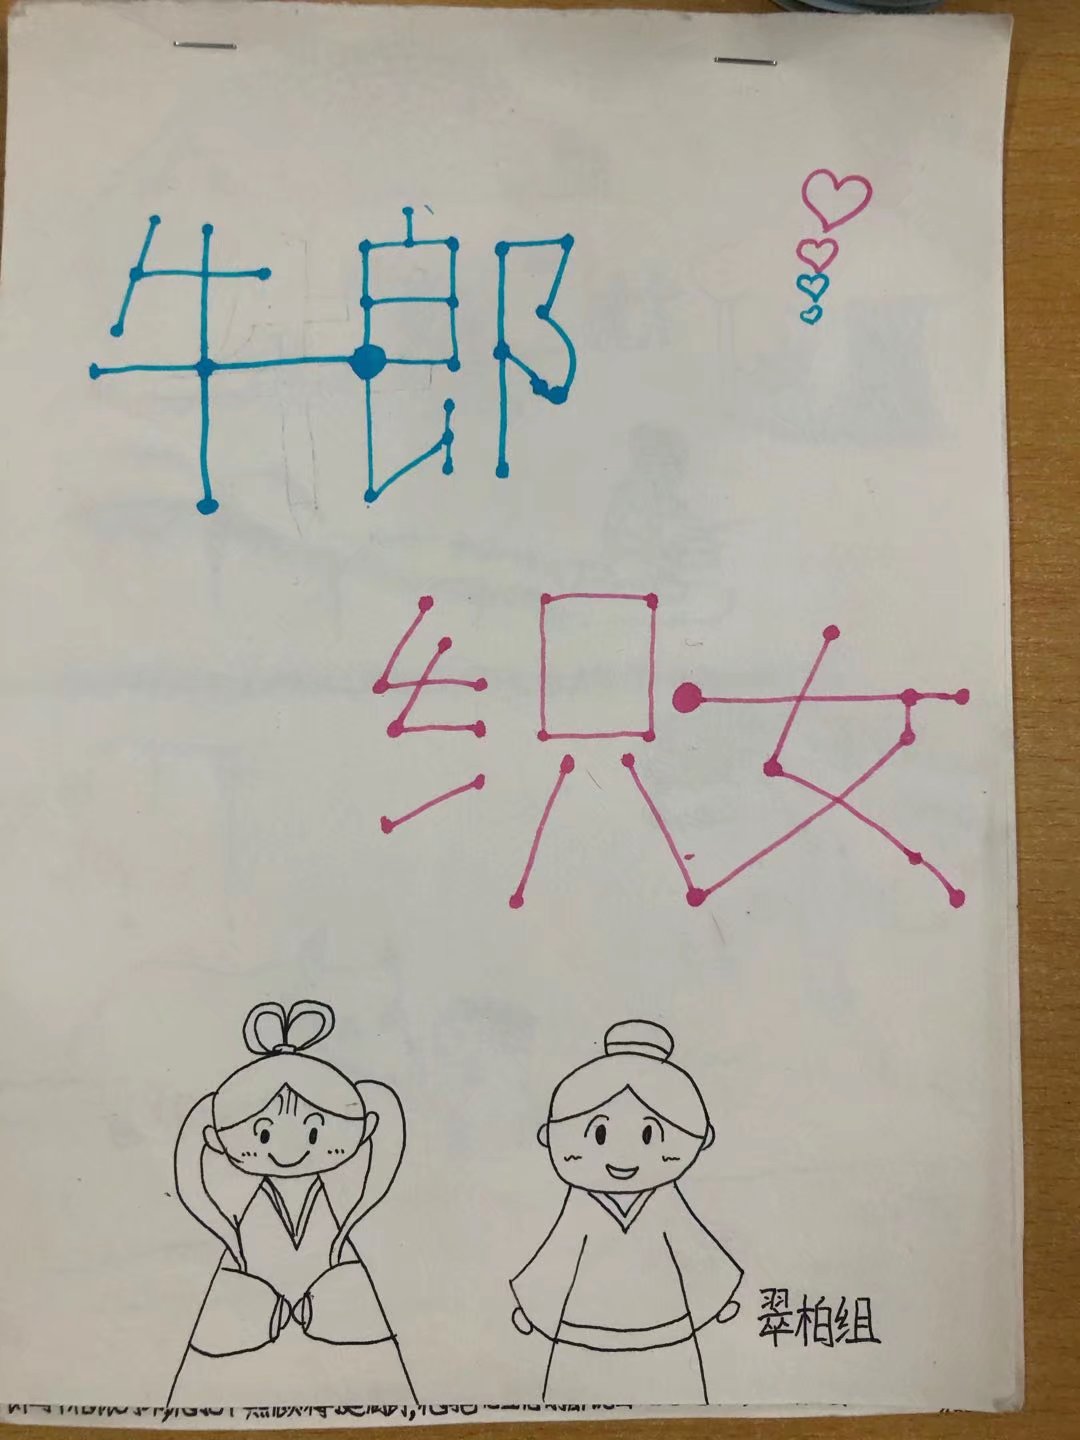 牛郎
织女
翠柏组